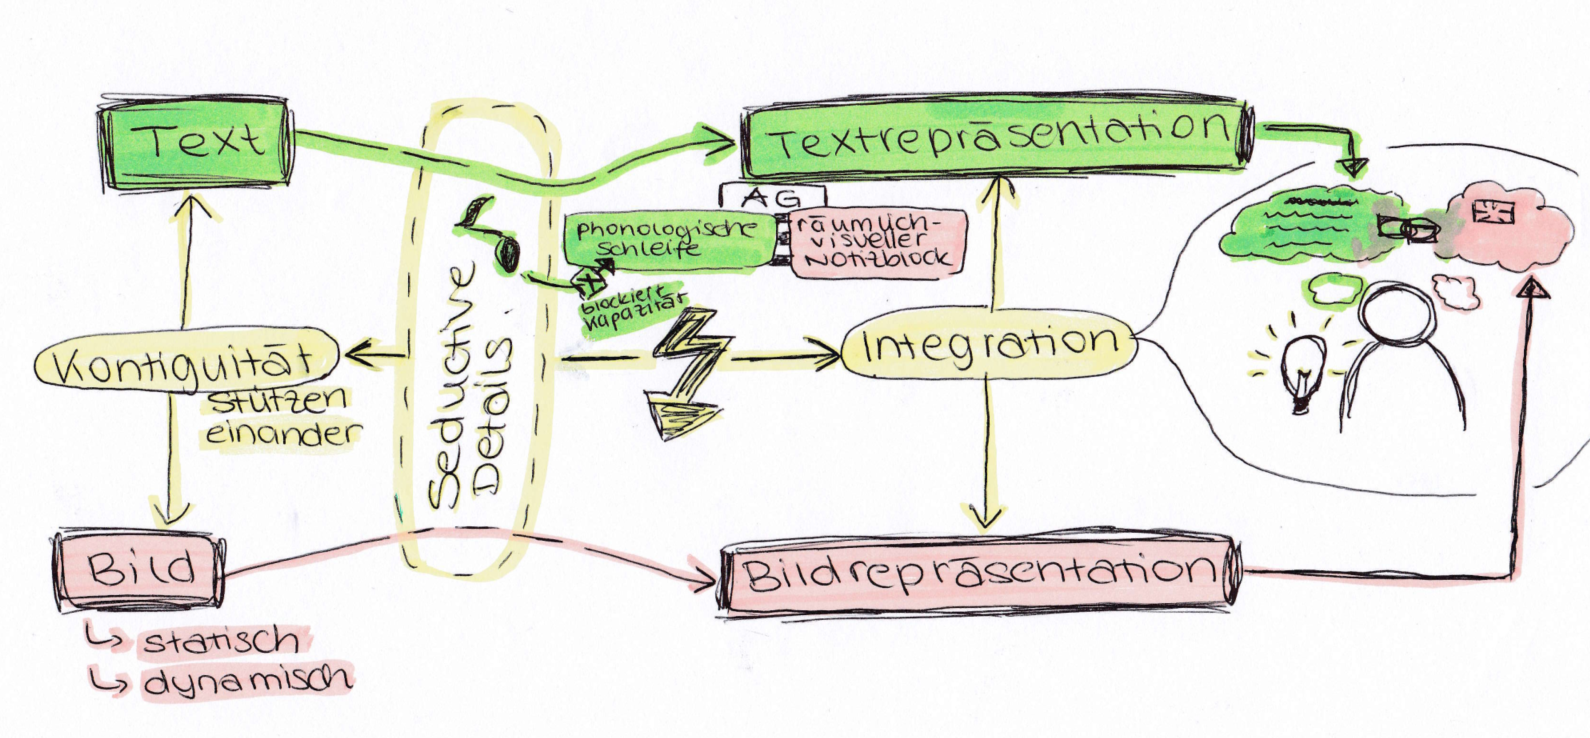 Text
Textrepräsentation
AG
phonologische
schleife
räumlich-
visueller
Notizblock
blockiert
Kapazität
Seductive
Details
Kontiguität
stützen
einander
Integration
Bild
Bildrepräsentation
↳ statisch
↳ dynamisch